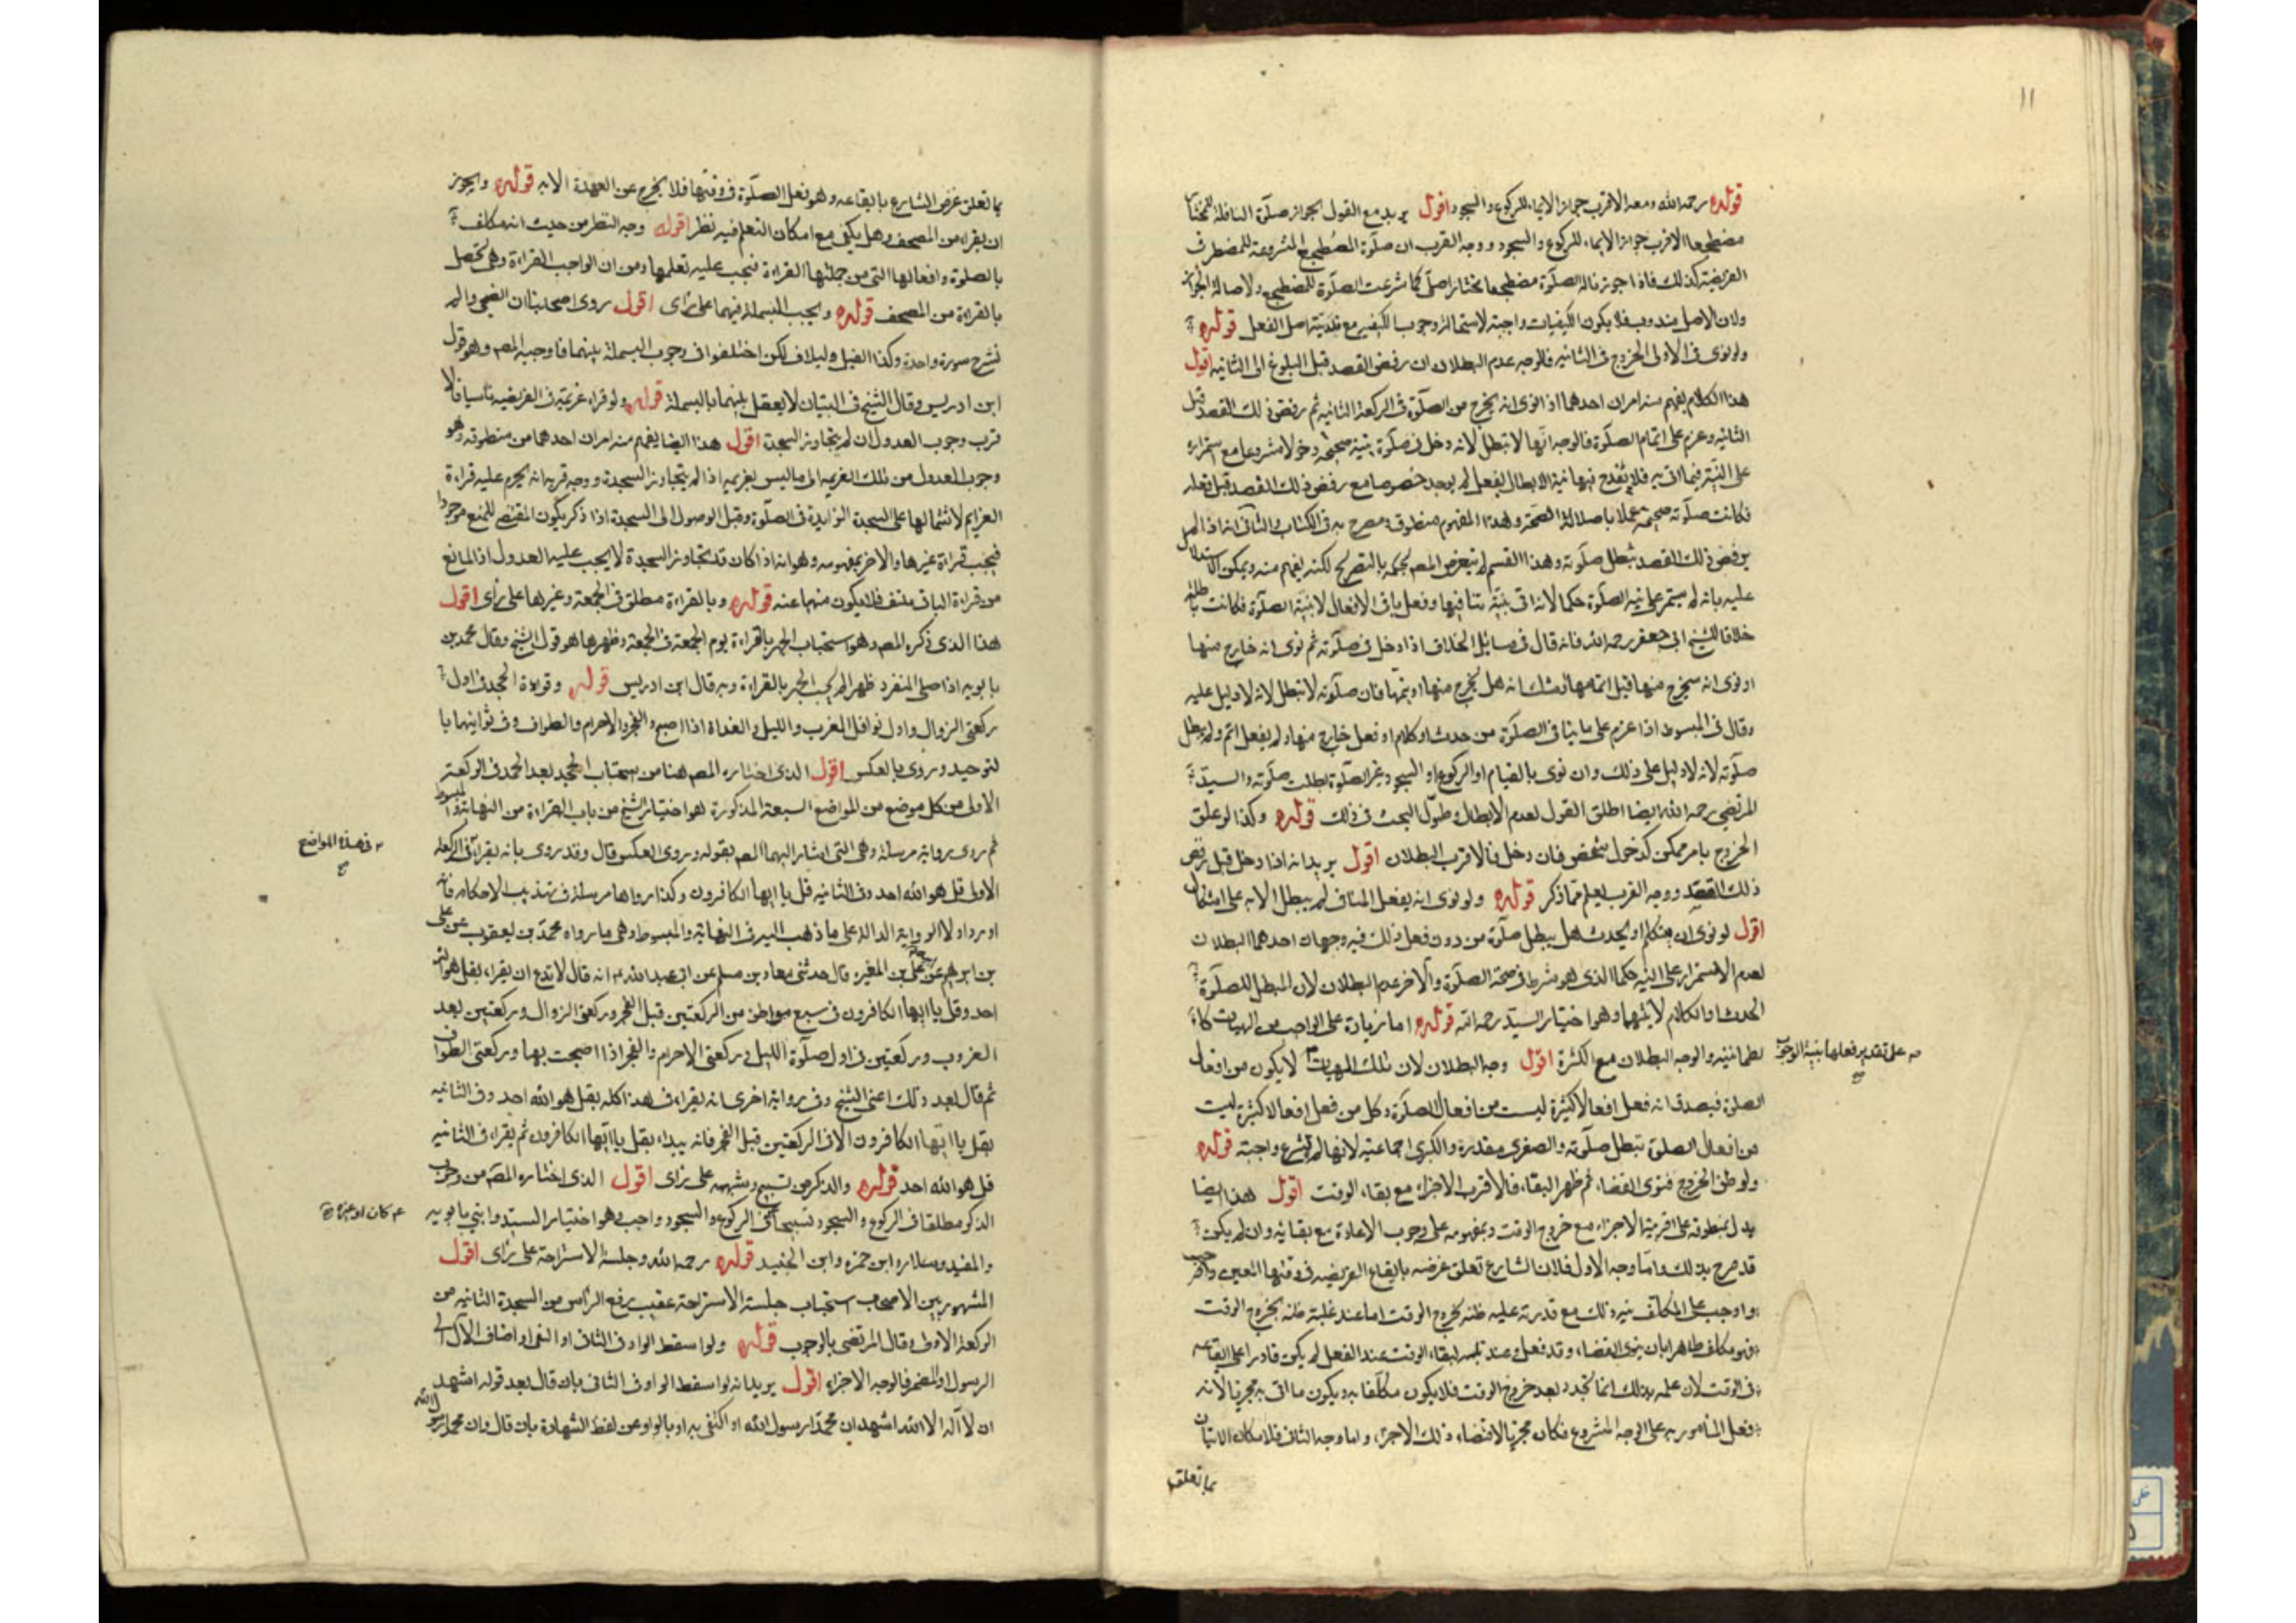 ١١
قوله رحمه الله ومعه الاقرب جواز الايماء للركوع والسجود اقول يريد مع القول بجواز صلوة النافلة للمختار
مضطجعا الاقرب جواز الايماء للركوع والسجود ووجه القرب ان صلوة المضطجع المشروعة للمضطر في
الفريضة كذلك فاذا جوزنا له الصلوة مضطجعا مختارا صلى كما شرعت الصلوة للمضطجع ولاصالة الجواز
ولان الاصل مندوب فلا يكون الكيفيات واجبة لاستحالة وجوب الكيفية مع ندبية اصل الفعل قوله
ولو نوى في الاولى الخروج في الثانية فالوجه عدم البطلان ان رفض القصد قبل البلوغ الى الثانية اقول
هذا الكلام يفهم منه امران احدهما اذا نوى انه يخرج من الصلوة في الركعة الثانية ثم رفض ذلك القصد قبل
الثانية وعزم على اتمام الصلوة فالوجه انها لا تبطل لانه دخل في صلوة بنية صحيحة دخولا مشروعا مع استمراره
على النية فيما اتى به فلا يقدح فيها نية الابطال بفعل لم يوجد خصوصا مع رفض ذلك القصد قبل فعله
فكانت صلوته صحيحة عملا باصالة الصحة وهذا المفهوم منطوق ومصرح به في الكتاب والثاني انه اذا لم
يرفض ذلك القصد تبطل صلوته وهذا القسم لم يتعرض المصـ لحكمه بالتصريح لكنه يفهم منه ويمكن الاستدلال
عليه بانه لم يستمر على نية الصلوة حكما لانه اتى بنية تنافيها وفعل باقي الافعال لا بنية الصلوة فكانت باطلة
خلافا للشيخ ابي جعفر رحمه الله فانه قال في مسائل الخلاف اذا دخل في صلوته ثم نوى انه خارج منها
او نوى انه سيخرج منها قبل اتمامها او شك انه هل يخرج منها او يتمها فان صلوته لا تبطل لانه لا دليل عليه
وقال في المبسوط اذا عزم على ما ينافي الصلوة من حدث او كلام او فعل خارج منها ولم يفعل اثم ولم يبطل
صلوته لانه لا دليل على ذلك وان نوى بالقيام او الركوع او السجود غير الصلوة بطلت صلوته والسيد
المرتضى رحمه الله ايضا اطلق القول لعدم الابطال وطول البحث في ذلك قوله وكذا لو علق
الخروج بامر ممكن كدخول شخص فان دخل فالاقرب البطلان اقول يريد انه اذا دخل قبل رفض
ذلك القصد ووجه القرب يعلم مما ذكر قوله ولو نوى انه يفعل المنافي لم يبطل الا به على اشكال
اقول لو نوى ان يتكلم او يحدث هل يبطل صلوة من دون فعل ذلك فيه وجهان احدهما البطلان
لعدم الاستمرار على النية حكما الذي هو شرط في صحة الصلوة والآخر عدم البطلان لان المبطل للصلوة
الحدث او الكلام لا نيتهما وهو اختيار السيد رحمه الله قوله اما زيادة على الواجب من الهيات كا
لطمانينة والوجه البطلان مع الكثرة اقول وجه البطلان لان تلك الهيات لا يكون من افعال
على تقدير فعلها بنية الوجوب صح
الصلوة فيصدق انه فعل افعالا كثيرة ليست من افعال الصلوة وكل من فعل افعالا كثيرة ليست
من افعال الصلوة تبطل صلوته والصغرى مقدرة والكبرى اجماعية لانها لم تشرع واجبة قوله
ولو ظن الخروج فنوى القضاء ثم ظهر البقاء فالاقرب الاجزاء مع بقاء الوقت اقول هذا ايضا
يدل بمنطوقه على اقربية الاجزاء مع خروج الوقت وبمفهومه على وجوب الاعادة مع بقائه وان لم يكن
قد صرح بذلك واما وجه الاول فلان الشارع تعلق غرضه بايقاع الفريضة في وقتها المعين
واوجب على المكلف نية ذلك مع قدرته عليه ظنه بخروج الوقت اما عند غلبة ظنه بخروج الوقت
فهو مكلف ظاهرا بان ينوي القضاء وقد فعل وعند تلبسه ببقاء الوقت عند الفعل لم يكن قادرا على ايقاعه
في الوقت لان علمه بذلك انما تجدد بعد خروج الوقت فلا يكون مكلفا به ويكون ما اتى به مجزيا لانه
فعل المامور به على الوجه المشروع فكان مجزيا لاقتضاء ذلك الاجزاء واما وجه الثاني فلامكان الاتيان
بما تعلق
بما تعلق غرض الشارع بايقاعه وهو فعل الصلوة في وقتها فلا يخرج عن العهدة الا به قوله ويجوز
ان يقراء من المصحف وهل يكفي مع امكان التعلم فيه نظر اقول وجه النظر من حيث انه مكلف
بالصلوة وافعالها التي من جملتها القراءة فيجب عليه تعلمها ومن ان الواجب القراءة وهي تحصل
بالقراءة من المصحف قوله ويجب البسملة فيهما على راى اقول روى اصحابنا ان الضحى والم
نشرح سورة واحدة وكذا الفيل ولايلاف لكن اختلفوا في وجوب البسملة بينهما فاوجبه المصـ وهو قول
ابن ادريس وقال الشيخ في التبيان لا يفصل بينهما بالبسملة قوله ولو قراء عزيمة في الفريضة ناسيا فالا
قرب وجوب العدول ان لم يتجاوز السجدة اقول هذا ايضا يفهم منه امران احدهما من منطوقه وهو
وجوب العدول من تلك العزيمة الى ما ليس بعزيمة اذا لم يتجاوز السجدة ووجه قربه انه يحرم عليه قراءة
العزايم لاشتمالها على السجدة الزايدة في الصلوة وقبل الوصول الى السجدة اذا ذكر يكون المقتضى للمنع موجودا
فيجب قراءة غيرها والآخر بمفهومه وهو انه اذا كان قد تجاوز السجدة لا يجب عليه العدول اذ المانع
من قراءة الباقي منتف فلا يكون منهيا عنه قوله وبالقراءة مطلقا في الجمعة وغيرها على راى اقول
هذا الذي ذكره المصـ وهو استحباب الجهر بالقراءة يوم الجمعة في الجمعة وظهرها هو قول الشيخ وقال محمد بن
بابويه اذا صلى المنفرد ظهرا لم يجب الجهر بالقراءة وبه قال ابن ادريس قوله وقراءة الجحد في اول
ركعتي الزوال واول نوافل المغرب والليل والغداة اذا اصبح والفجر والاحرام والطواف وفي ثوانيهما با
لتوحيد وروى بالعكس اقول الذي اختاره المصـ هنا من استحباب الجحد بعد الحمد في الركعة
الاولى من كل موضع من المواضع السبعة المذكورة هو اختيار الشيخ من باب القراءة من النهاية والمبسوط
ثم روى رواية مرسلة وهي التي اشار اليها المصـ بقوله وروى العكس قال وقد روى بانه يقراء في الركعة
في هذه المواضع صح
الاولى قل هو الله احد وفي الثانية قل يا ايها الكافرون وكذا رواها مرسلة في تهذيب الاحكام فانه
اورد اولا الرواية الدالة على ما ذهب اليه في النهاية والمبسوط وهي ما رواه محمد بن يعقوب عن علي
بن ابرهيم عن بن المغيرة قال حدثني معاذ بن مسلم عن ابي عبد الله انه قال لا تدع ان يقراء بقل هو الله
احد وقل يا ايها الكافرون في سبع مواطن من الركعتين قبل الفجر وركعتي الزوال وركعتين بعد
الغروب وركعتين في اول صلوة الليل وركعتي الاحرام والفجر اذا اصبحت بها وركعتي الطواف
ثم قال بعد ذلك اعني الشيخ وفي رواية اخرى انه يقراء في هذا كله بقل هو الله احد وفي الثانية
بقل يا ايها الكافرون الا في الركعتين قبل الفجر فانه يبداء بقل يا ايها الكافرون ثم يقراء في الثانية
قل هو الله احد قوله والذكر من تسبيح وشبهه على راى اقول الذي اختاره المصـ من وجوب
الذكر مطلقا في الركوع والسجود تسبيحا في الركوع والسجود واجب وهو اختيار السيد وابني بابويه
كان او غيره صح
والمفيد وسلار وابن حمزة وابن الجنيد قوله رحمه الله وجلسة الاستراحة على راى اقول
المشهور بين الاصحاب استحباب جلسة الاستراحة عقيب رفع الراس من السجدة الثانية من
الركعة الاولى وقال المرتضى بالوجوب قوله ولو اسقط الواو في الثاني او اكتفى او اضاف الآل الى
الرسول او المضمر فالوجه الاجزاء اقول يريد انه لو اسقط الواو في الثاني بان قال بعد قوله اشهد
ان لا اله الا الله اشهد ان محمدا رسول الله او اكتفى به او بالواو عن لفظ الشهادة بان قال وان محمدا رسول الله